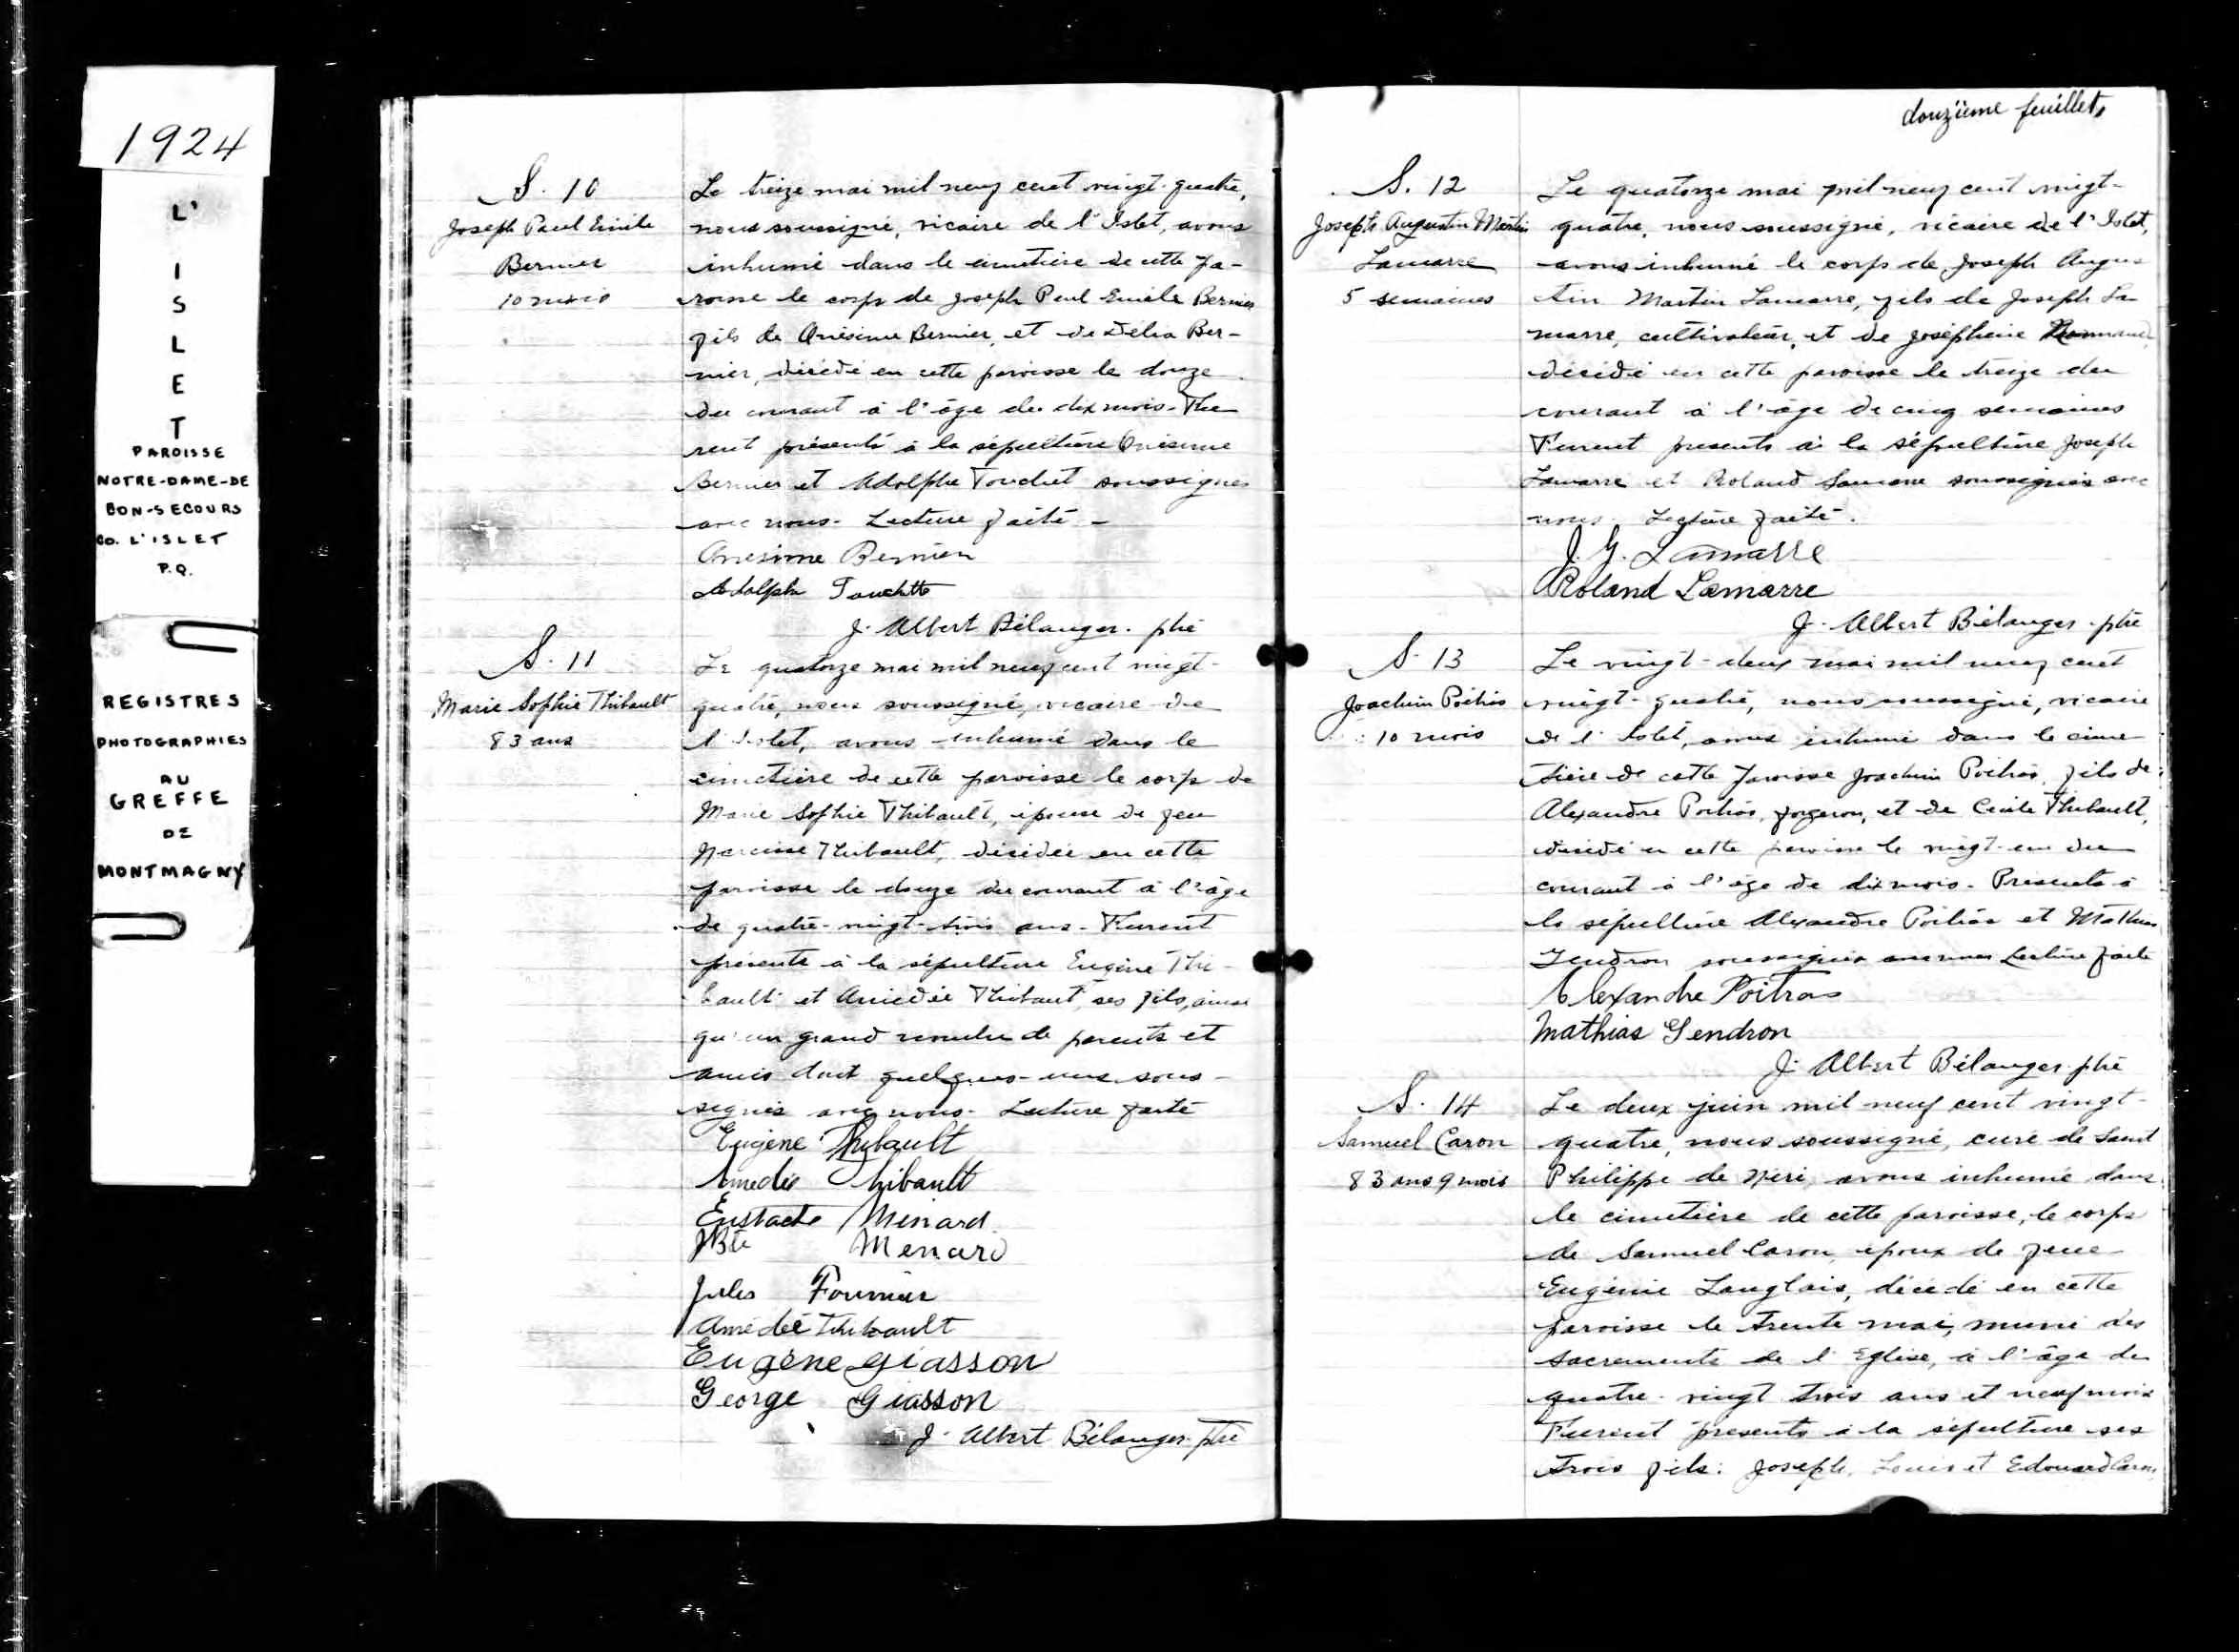 1924
L'
I
S
L
E
T
PAROISSE
NOTRE-DAME-DE
BON-SECOURS
CO. L'ISLET
P.Q.
REGISTRES
PHOTOGRAPHIES
AU
GREFFE
DE
MONTMAGNY
S. 10
Joseph Paul Emile
Bernier
10 mois
Le treize mai mil neuf cent vingt-quatre,
nous soussigné, vicaire de l'Islet, avons
inhumé dans le cimetière de cette pa-
roisse le corps de Joseph Paul Emile Bernier
fils de Onésime Bernier, et de Délia Ber-
nier, décédé en cette paroisse le douze
du courant à l'âge de dix mois. Fu
rent présents à la sépulture Onésime
Bernier et Adolphe Touchet soussignés
avec nous. Lecture faite -
Onesime Bernier
Adolphe Touchette
J. Albert Bélanger. ptre
S. 11
Marie Sophie Thibault
83 ans
Le quatorze mai mil neuf cent vingt-
quatre, nous soussigné, vicaire de
l'Islet, avons inhumé dans le
cimetière de cette paroisse le corps de
Marie Sophie Thibault, épouse de feu
Narcisse Thibault, décédée en cette
paroisse le douze du courant à l'âge
de quatre-vingt-trois ans. Furent
présents à la sépulture Eugène Thi-
bault et Amédée Thibault, ses fils, ainsi
qu'un grand nombre de parents et
amis dont quelques-uns sous-
signés avec nous. Lecture faite
Eugène Thibault
Amedée Thibault
Eustache Menard
JBte Menard
Jules Fournier
Amédée Thibault
Eugène Giasson
George Giasson
J. Albert Bélanger ptre
douzième feuillet,
S. 12
Joseph Augustin Martin
Lamarre
5 semaines
Le quatorze mai mil neuf cent vingt-
quatre, nous soussigné, vicaire de l'Islet,
avons inhumé le corps de Joseph Augus
tin Martin Lamarre, fils de Joseph La
marre, cultivateur, et de Joséphine Normand
décédé en cette paroisse le treize du
courant à l'âge de cinq semaines
Furent presents à la sépulture Joseph
Lamarre et Roland Lamarre soussignés avec
nous. Lecture faite.
J. G. Lamarre
Roland Lamarre
J. Albert Bélanger. ptre
S. 13
Joachim Poitras
10 mois
Le vingt-deux mai mil neuf cent
vingt-quatre, nous soussigné, vicaire
de l'Islet, avons inhumé dans le cime
tière de cette paroisse Joachim Poitras, fils de
Alexandre Poitras, forgeron, et de Cécile Thibault,
décédé en cette paroisse le vingt-un du
courant à l'âge de dix mois. Présents à
la sépulture Alexandre Poitras et Mathias
Gendron soussignés avec nous Lecture faite
Alexandre Poitras
Mathias Gendron
J. Albert Bélanger ptre
S. 14
Samuel Caron
83 ans 9 mois
Le deux juin mil neuf cent vingt-
quatre, nous soussigné, curé de Saint
Philippe de Néri, avons inhumé dans
le cimetière de cette paroisse, le corps
de Samuel Caron, époux de feue
Eugénie Langlais, décédé en cette
paroisse le trente mai, muni des
sacrements de l'Eglise, à l'âge de
quatre-vingt trois ans et neuf mois
Furent présents à la sépulture ses
trois fils: Joseph, Louis et Edouard Caron,